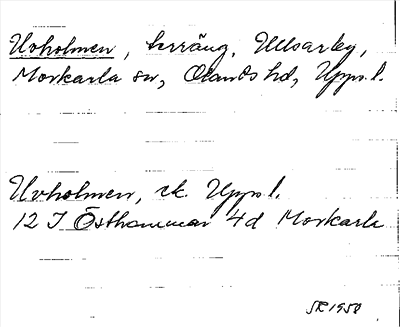 Uvholmen, terräng, Ullsarby,
Morkarla sn, Olands hd, Upps. l.
Uvholmen, ek. Upps l.
12 I Östhammar 4d Morkarla
SR 1950